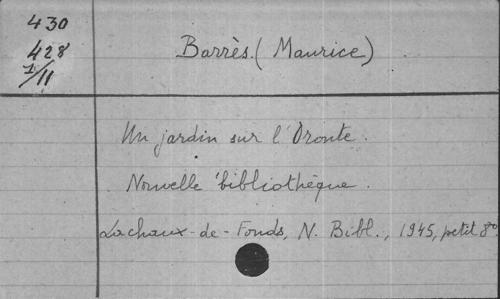 430
428
1/11
Barrès. (Maurice)
Un jardin sur l'Oronte.
Nouvelle bibliothèque.
Lachaux-de-Fonds, N. Bibl., 1945, petit 8°.